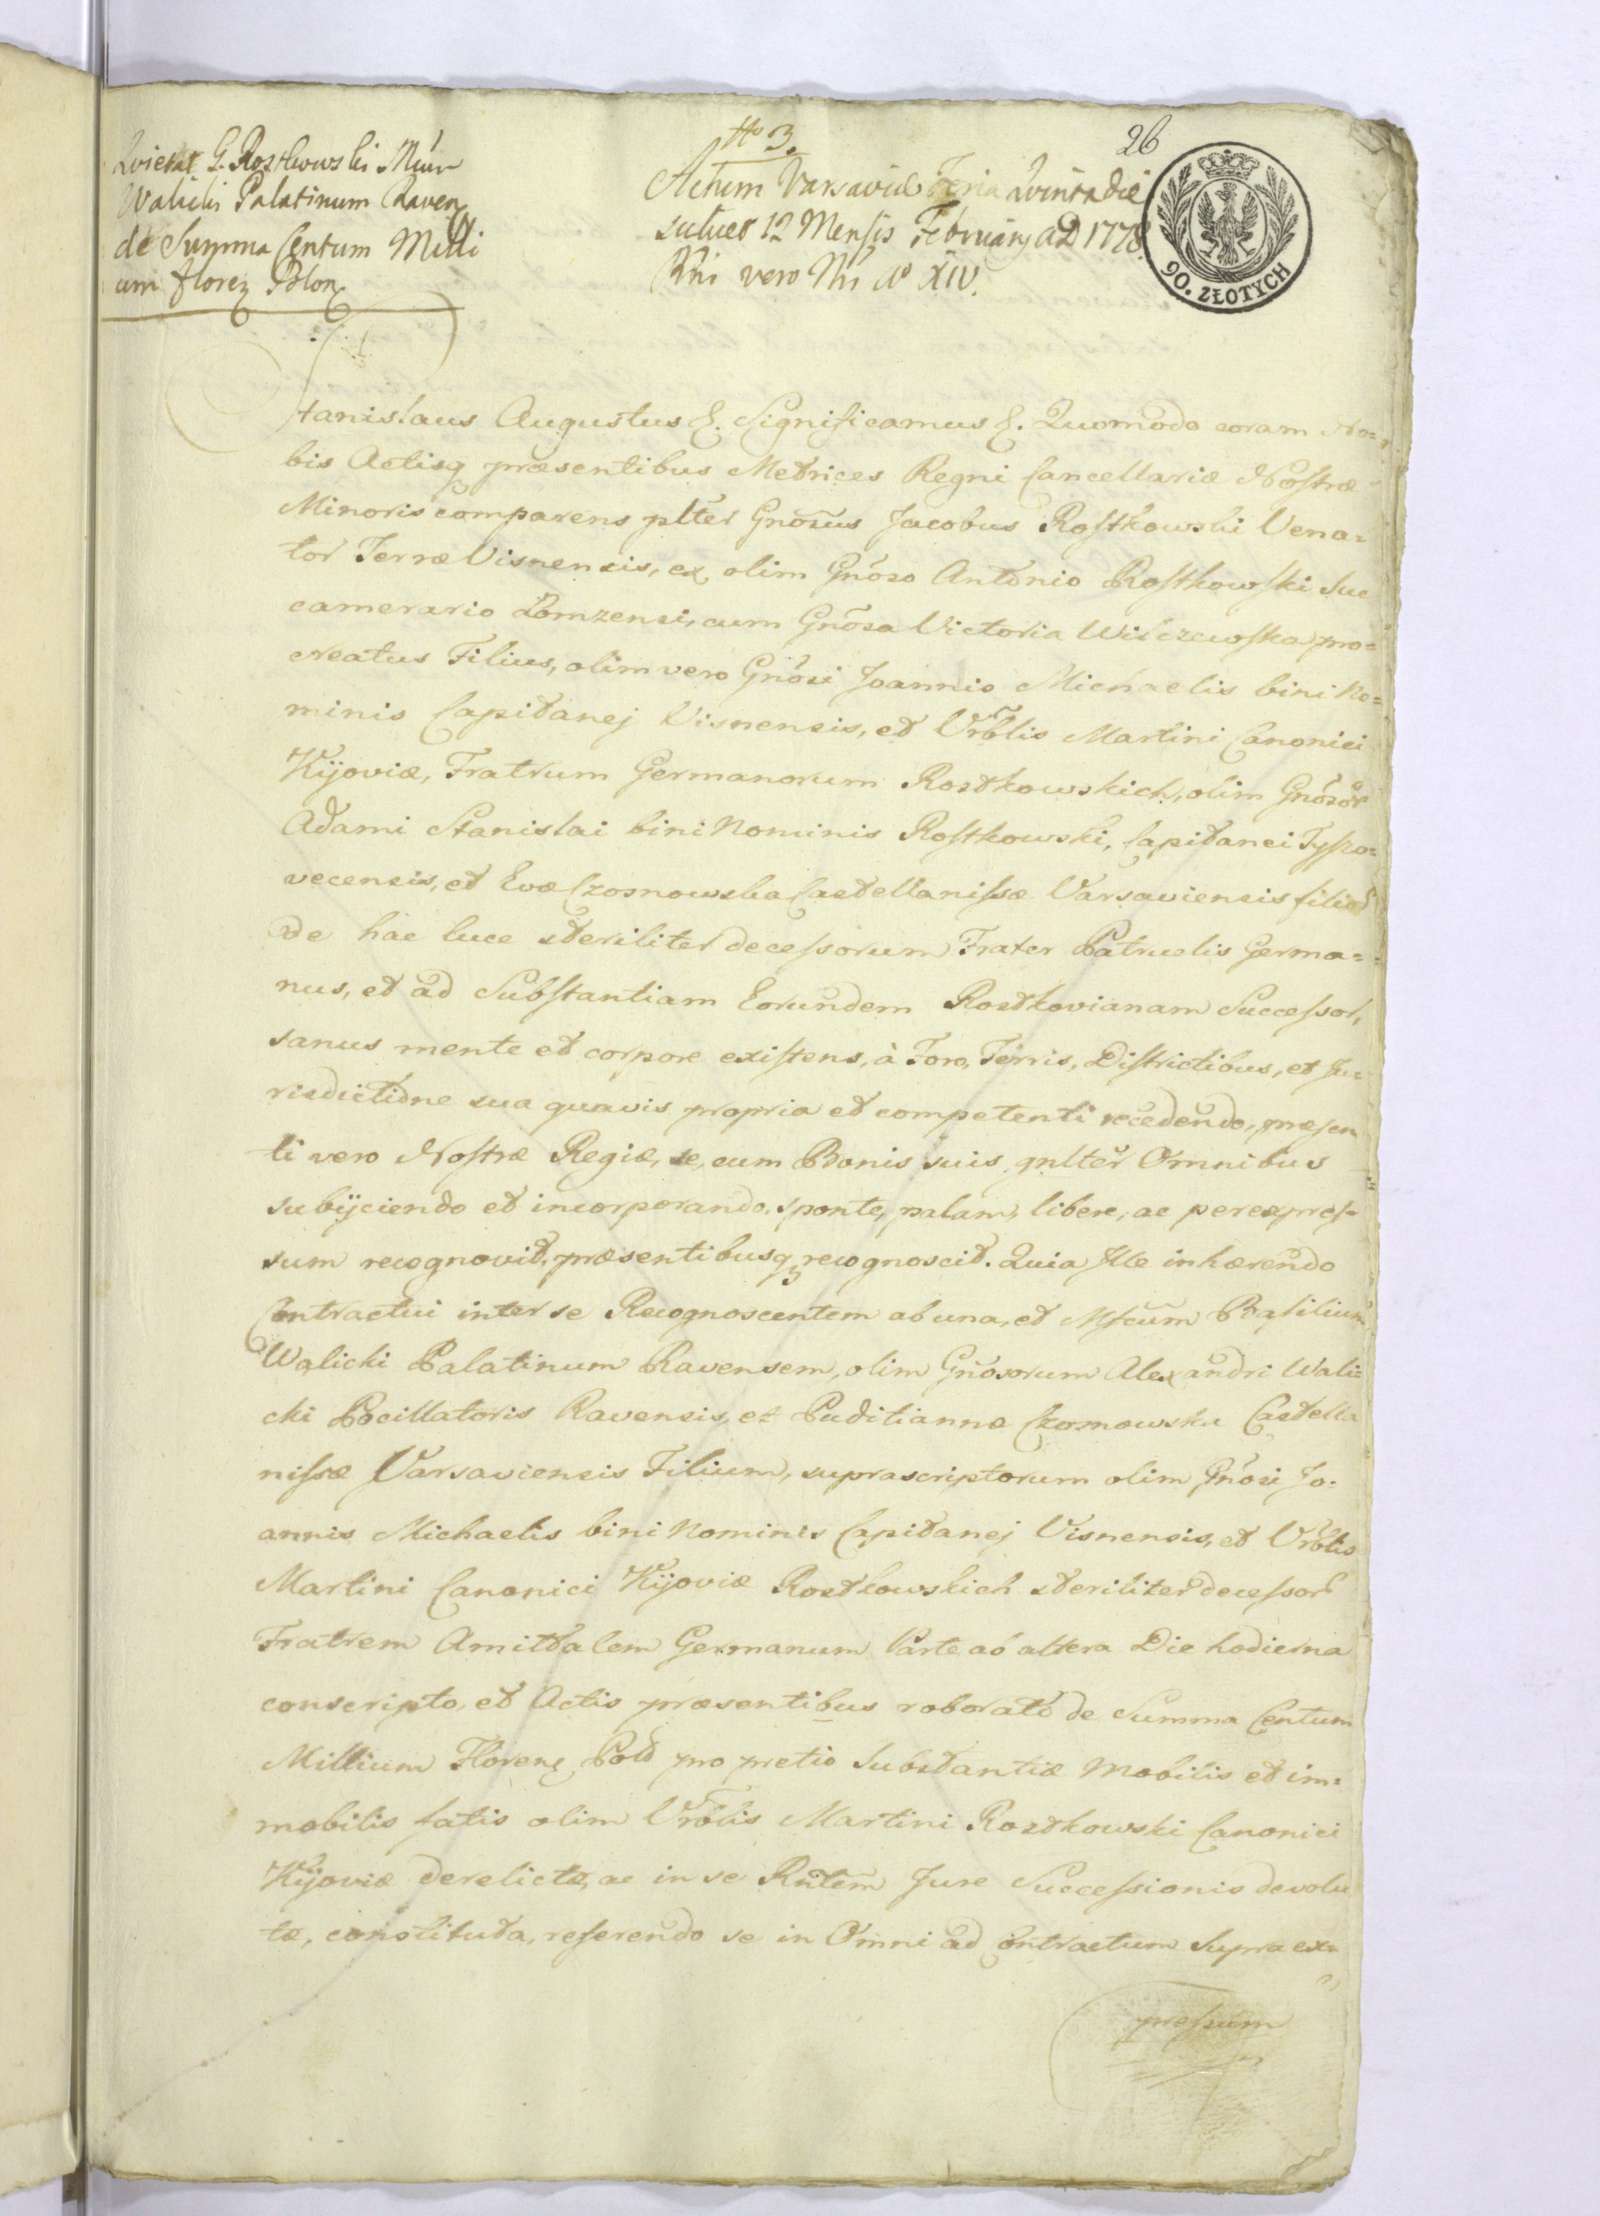 Quietat G. Rostkowski Mcum
Walicki Palatinum Raven
de Summa Centum Milli
um floren Polon
No 3.
Actum Varsaviæ Feria Quinta die
scilicet 12 Mensis Februarij AD 1778
Rni vero Nri Ao XIV.
26
90. ZŁOTYCH
Stanislaus Augustus &. Significamus &. Quomodo coram No=
bis Actisq præsentibus Metrices Regni Cancellariæ Nostræ
Minoris comparens plter Gnosus Jacobus Rostkowski Vena=
tor Terræ Visnensis, ex olim Gnoso Antonio Rostkowski Suc
camerario Lomzensi, cum Gnosa Victoria Wilczewska pro=
creatus Filius, olim vero Gnosi Joannis Michaelis bini No=
minis Capitanej Visnensis, et Vrblis Martini Canonici
Kijoviæ, Fratrum Germanorum Rostkowskich, olim Gnosor
Adami Stanislai bini Nominis Rostkowski, Capitanei Tyszo=
vecensis, et Evæ Czosnowska Castellanissæ Varsaviensis filior
de hac luce steriliter decessorum Frater Patruelis Germa=
nus, et ad Substantiam Eorundem Rostkovianam Successor,
sanus mente et corpore existens, à Foro, Terris, Districtibus, et Ju=
risdictione sua quavis propria et competenti recedendo, præsen
ti vero Nostræ Regiæ, se, cum Bonis suis gnlter Omnibus
subijciendo et incorporando, sponte, palam, libere, ac per expres=
sum recognovit, præsentibusq recognoscit. Quia Ille inhærendo
Contractui inter se Recognoscentem ab una, et Mfcum Basilium
Walicki Palatinum Ravensem, olim Gnosorum Alexandri Wali=
cki Pocillatoris Ravensis, et Puditiannæ Czosnowska Castella
nissæ Varsaviensis Filium, suprascriptorum olim Gnosi Jo=
annis Michaelis bini Nominis Capitanej Visnensis, et Vrblis
Martini Canonici Kijoviæ Rostkowskich steriliter decessor
Fratrem Amitalem Germanum Parte ab altera Die hodierna
conscripto, et Actis præsentibus roborato de Summa Centum
Millium Floren Pol pro pretio Substantiæ Mobilis et im=
mobilis fatis olim Vrblis Martini Rostkowski Canonici
Kijoviæ derelictæ, ac in se Rntem Jure Successionis devolu
tæ, constituta, referendo se in Omni ad Contractum supra ex=
pressum